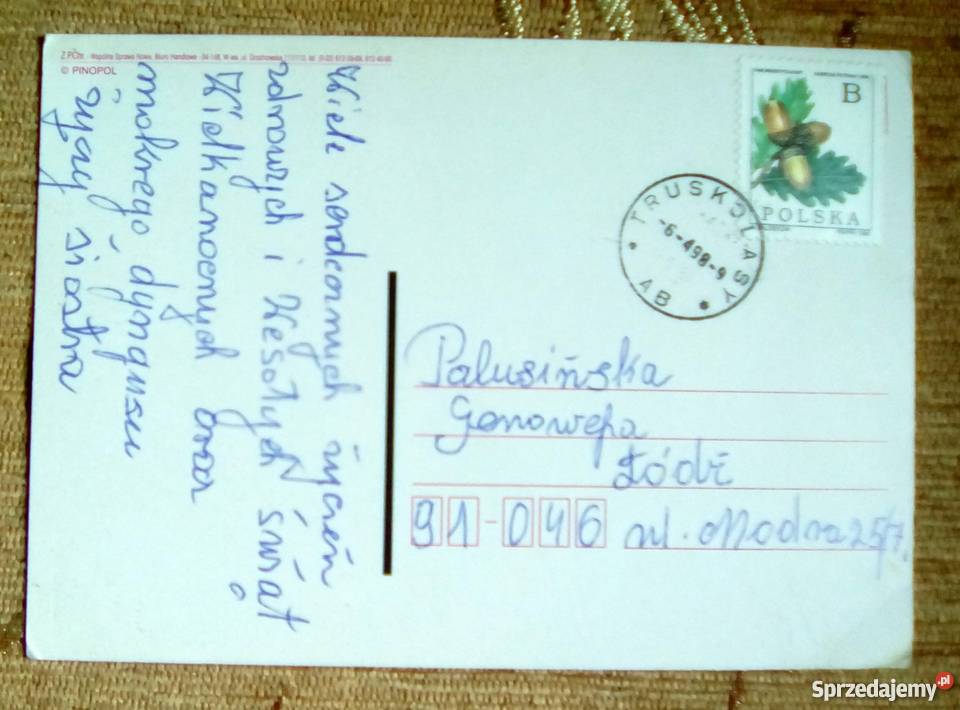 © PINOPOL
Wiele serdecznych życzeń
zdrowych i Wesołych Świąt
Wielkanocnych oraz
mokrego dyngusu
życzy siostra
B
POLSKA
TRUSKOLASY
-6-498-9
AB
Palusińska
Genowefa
Łódź
91-046 ul. Modra 25/7.
Sprzedajemy.pl